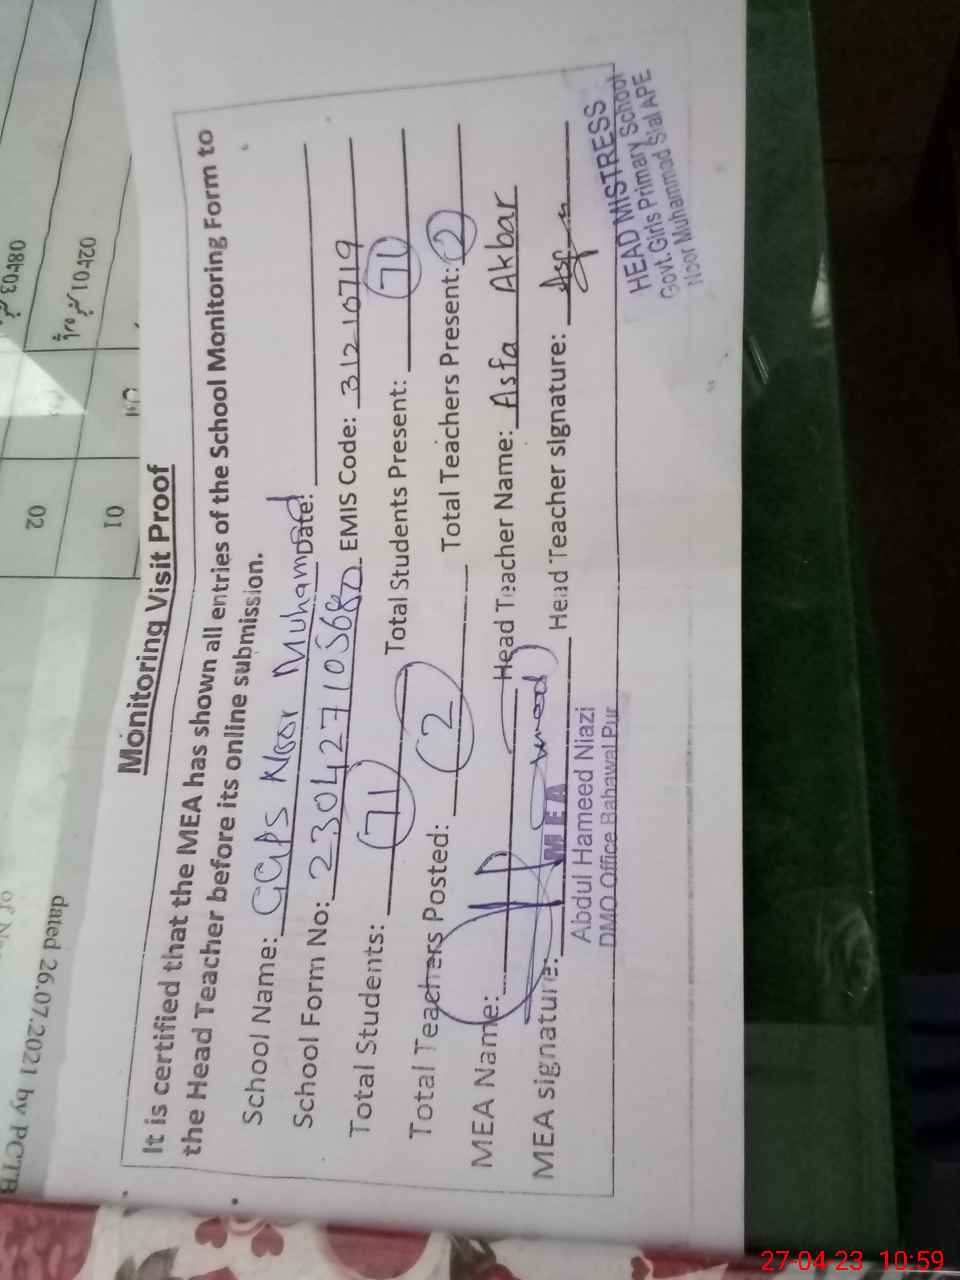 Monitoring Visit Proof
It is certified that the MEA has shown all entries of the School Monitoring Form to
the Head Teacher before its online submission.
School Name: GGPS Noor Muhammad Date:
School Form No: 230427105680 EMIS Code: 31210719
Total Students: 71 Total Students Present: 71
Total Teachers Posted: 2 Total Teachers Present: 2
MEA Name: Head Teacher Name: Asfa Akbar
MEA signature: Head Teacher signature:
MEA
Abdul Hameed Niazi
DMO Office Bahawal Pur
HEAD MISTRESS
Govt. Girls Primary School
Noor Muhammad Sial APE
dated 26.07.2021 by PCTB
02
01
27-04-23 10:59